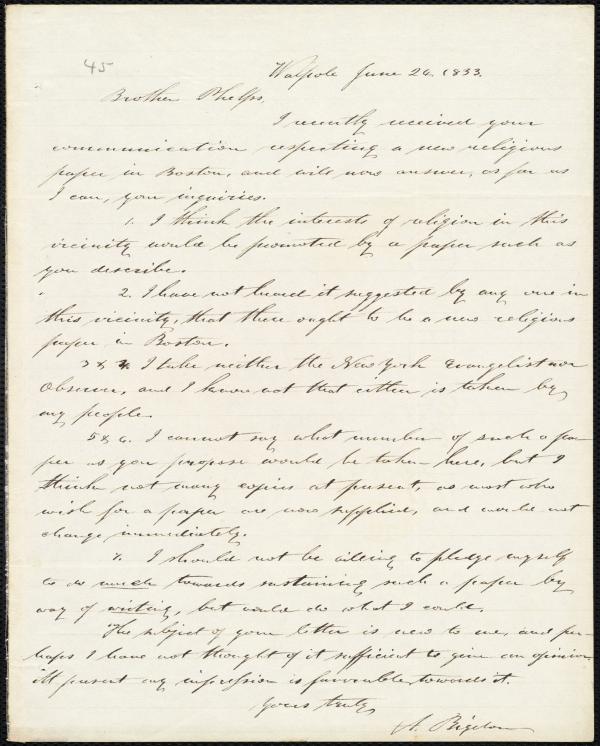 45
Walpole June 26. 1833.
Brother Phelps,
I recently received your
communication respecting a new religious
paper in Boston, and will now answer, as far as
I can, your inquiries.
1. I think the interests of religion in this
vicinity would be promoted by a paper such as
you describe.
2. I have not heard it suggested by any one in
this vicinity, that there ought to be a new religious
paper in Boston.
3 & 4. I take neither the New York Evangelist nor
Observer, and I know not that either is taken by
my people.
5 & 6. I cannot say what number of such a pa-
per as you propose would be taken here, but I
think not many copies at present, as most who
wish for a paper are now supplied, and would not
change immediately.
7. I should not be willing to pledge myself
to do much towards sustaining such a paper by
way of writing, but would do what I could.
The subject of your letter is new to me, and per-
haps I have not thought of it sufficient to give an opinion.
At present my impression is favourable towards it.
Yours truly,
A. Bigelow